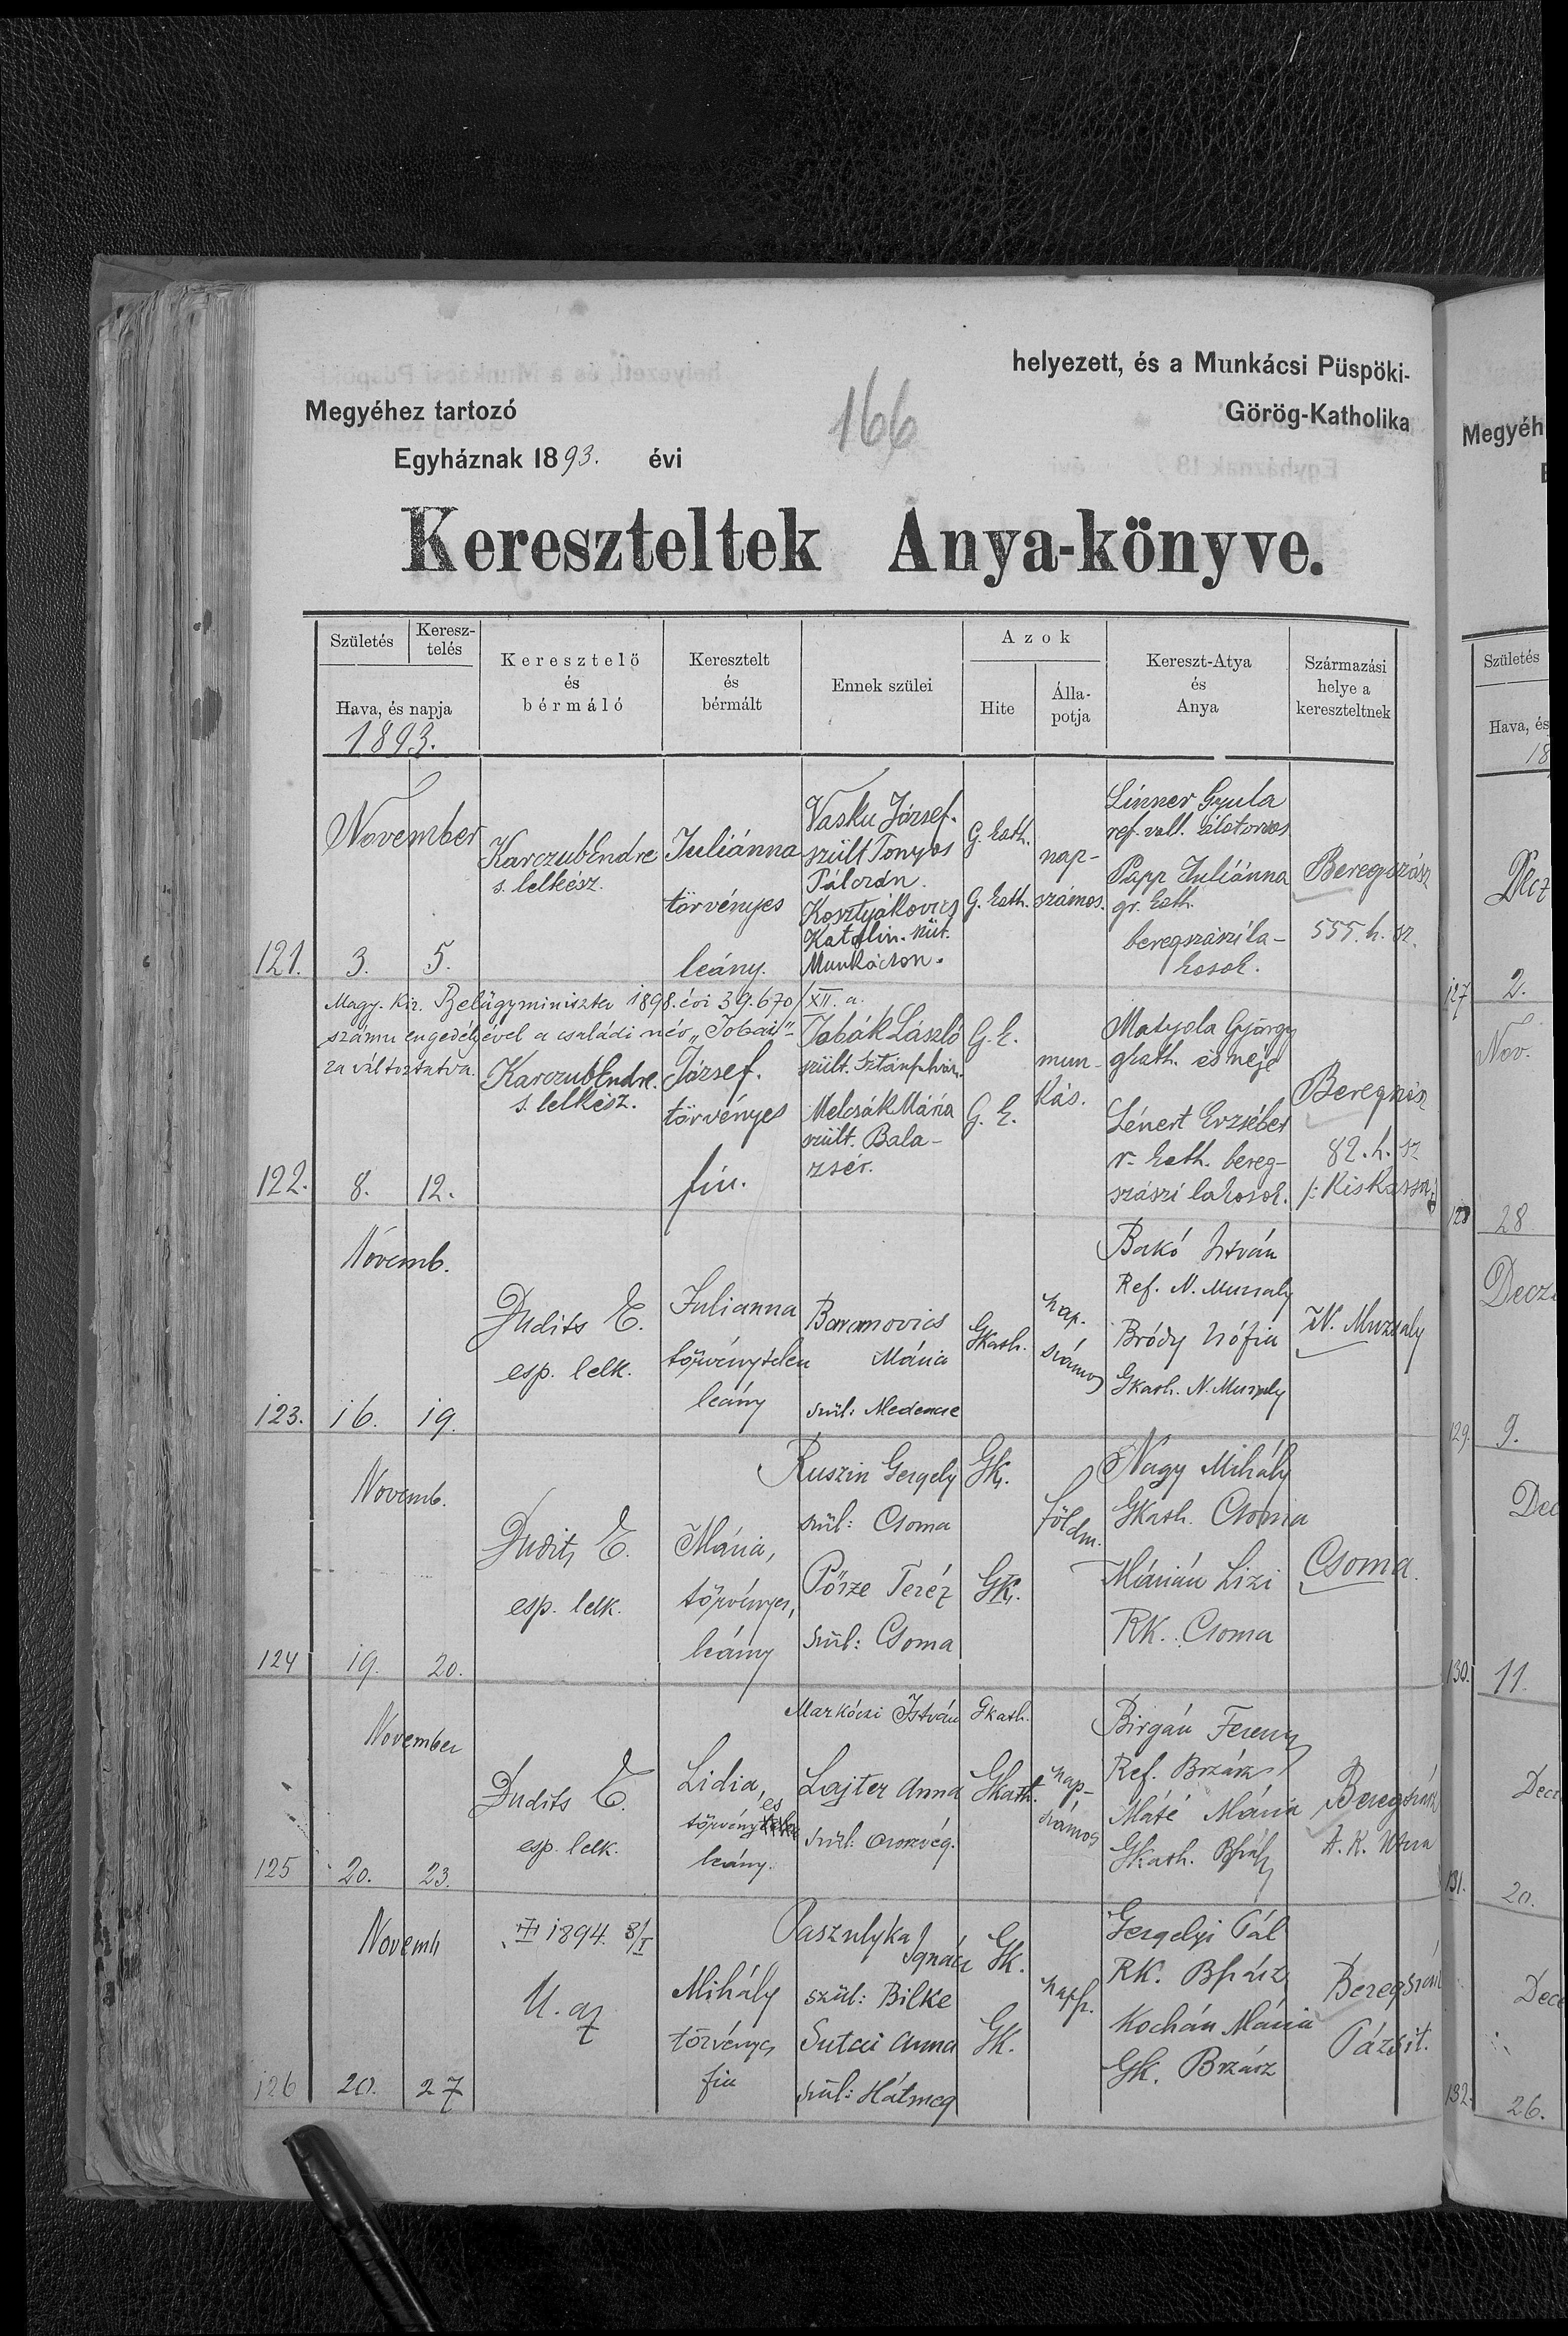 helyezett, és a Munkácsi Püspöki-
Megyéhez tartozó
166
Görög-Katholika
Egyháznak 1893. évi
Kereszteltek Anya-könyve.
Születés
Keresz-
telés
Hava, és napja
1893.
Keresztelő
és
bérmáló
Keresztelt
és
bérmált
Ennek szülei
Azok
Hite
Álla-
potja
Kereszt-Atya
és
Anya
Származási
helye a
kereszteltnek
121.
November
3.
5.
Karczub Endre
s. lelkész.
Juliánna
törvényes
leány.
Vasku József.
szült Tonyos
Kosztyákovics
Katalin. szül.
Munkácson.
G. kath.
G. kath.
nap-
számos.
Linner Gyula
ref. vall.
Papp Juliánna
gr. kath.
beregszászi la-
kosok.
Beregszász
555. h. sz.
Magy. Kir. Belügyminiszter 1898. évi 39.670/XII. a.
számu engedélyével a családi név „Tobai"-
ra változtatva.
122.
8.
12.
Karczub Endre.
s. lelkész.
József.
törvényes
fiu.
Tabák László
szült.
Melcsák Mária
szült. Bala-
zsér.
G. k.
G. k.
mun-
kás.
Matyola György
gkath. és neje
Lénert Erzsébet
r. kath. bereg-
szászi lakosok.
82. h. sz
123.
Novemb.
16.
19.
Dudits E.
esp. lelk.
Julianna
törvénytelen
leány
Baranovics
Mária
szül: Medencse
Gkath.
nap-
számos
Bakó István
Ref. N. Muzsaly
Bródy Zsófia
Gkath. N. Muzsaly
N. Muzsaly
124
Novemb.
19.
20.
Dudits E.
esp. lelk.
Mária,
törvényes,
leány
Ruszin Gergely
szül: Csoma
Pősze Teréz
szül: Csoma
GK.
GK.
földm.
Nagy Mihály
Gkath. Csoma
Márián Lizi
RK. Csoma
Csoma.
125
November
20.
23.
Dudits E.
esp. lelk.
Lidia,
törvényes
leány.
Markóczi István
Lajter Anna
szül: Oroszvég.
Gkath.
Gkath.
nap-
számos
Birgán Ferencz
Ref. Bszász
Máté Mária
Gkath. Bszász
Beregszász
126
Novemb
20.
27
1894. 8/I
U. az
Mihály
törvényes
fiu
Paszulyka
Ignácz
szül: Bilke
Sutai Anna
szül: Hátmeg
Gk.
Gk.
napsz.
Gergelyi Pál
RK. Bszász
Kochán Mária
Gk. Bszász
Beregszász
Pázsit.
Megyéh
Születés
Hava, és
18
127
2.
Nov.
128
28
129.
9.
Dec
130.
11.
131.
20.
132.
26.